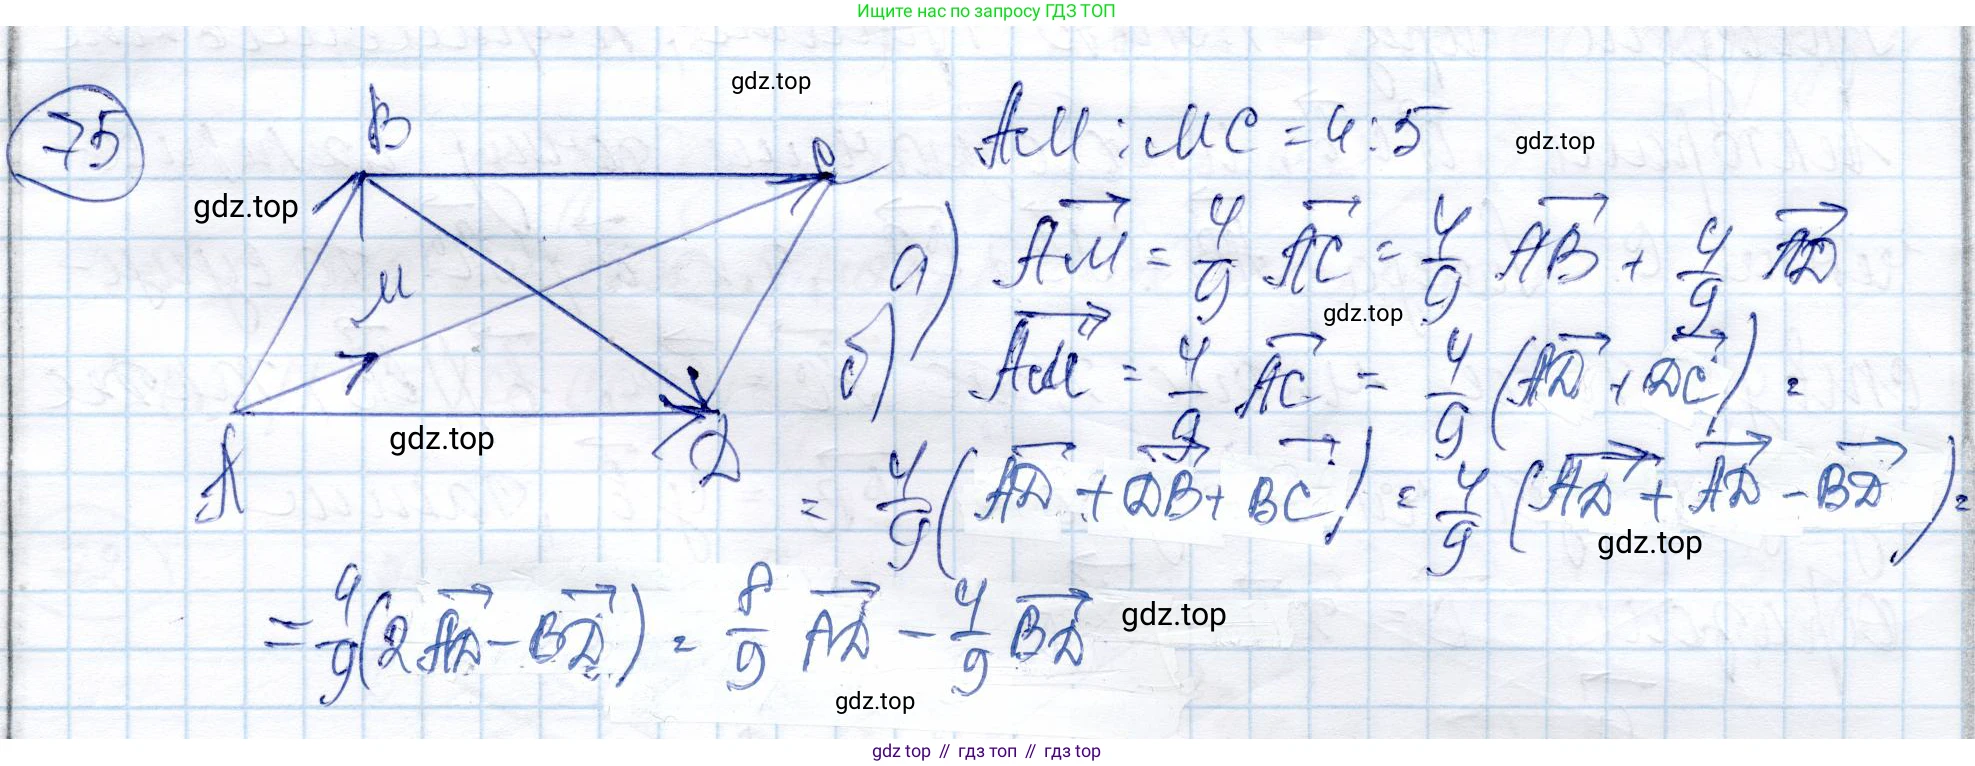 Ищите нас по запросу ГДЗ ТОП
75
B
gdz.top
C
AM : MC = 4 : 5
gdz.top
gdz.top
а) AM = 4/9 AC = 4/9 AB + 4/9 AD
M
gdz.top
б) AM = 4/9 AC = 4/9 (AD + DC) =
A
gdz.top
D
= 4/9 (AD + DB + BC) = 4/9 (AD + AD - BD) =
gdz.top
= 4/9 (2AD - BD) = 8/9 AD - 4/9 BD
gdz.top
gdz.top
gdz top // гдз топ // гдз top